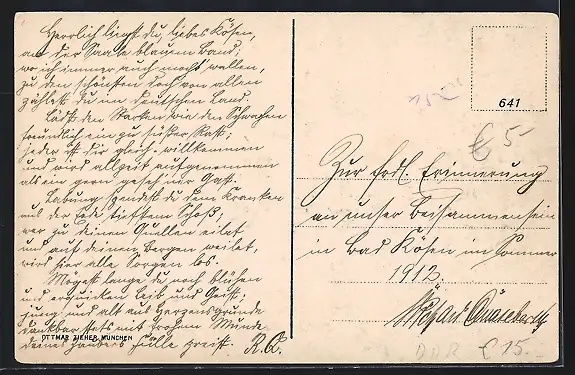 Herrlich liegst du, liebes Kösen,
an der Saale blauem Band,
wo ich immer auch mocht wallen,
zu den schönsten doch von allen
zählest du im deutschen Land.
Lädst den Starken wie den Schwachen
freundlich ein zu süßer Rast;
jeder ist dir gleich willkommen
und wird allzeit aufgenommen
als ein gern gesehener Gast.
Labung spendest du dem Kranken
aus der Erde tiefstem Schoß,
wer zu deinen Quellen eilet
und auf deinen Bergen weilet,
wird hier alle Sorgen los.
Mögest lange du noch blühen
und erquicken Leib und Geist;
jung und alt aus Herzensgrunde
dankbar stets mit frohem Munde
deines Zaubers Fülle preist. R. Q.
OTTMAR ZIEHER, MÜNCHEN
641
€ 5
Zur frdl. Erinnerung
an unser Beisammensein
in Bad Kösen im Sommer
1912.
DDR € 15.-